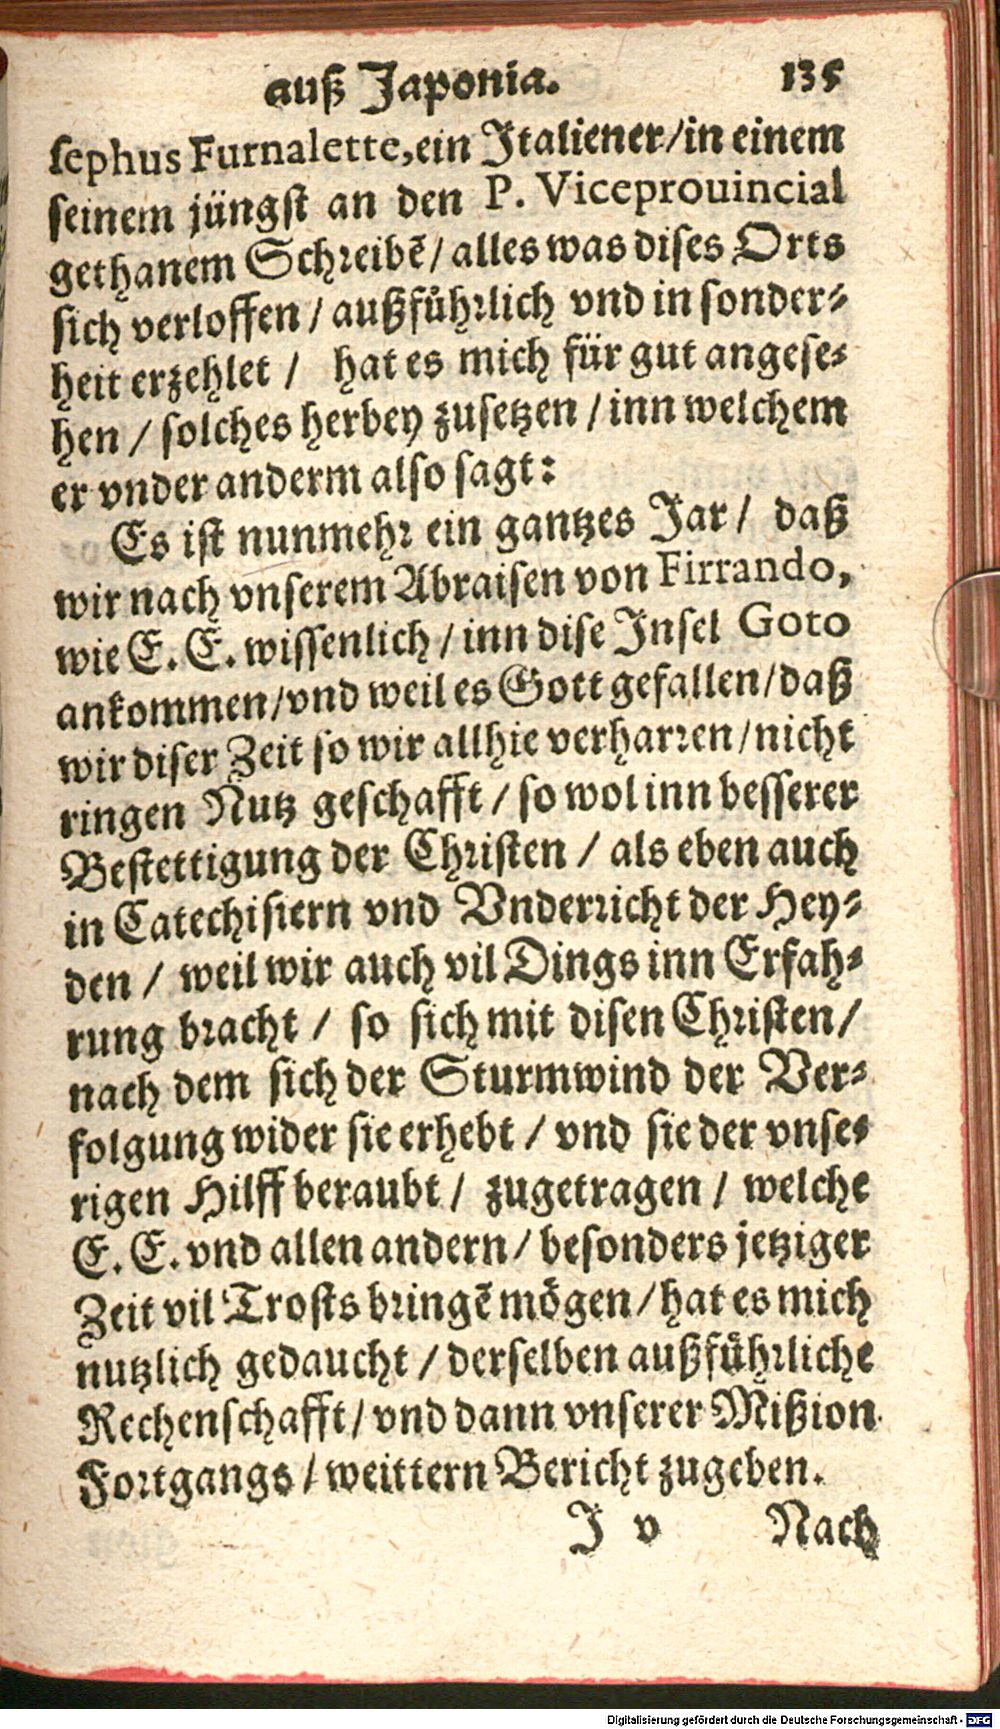 auß Japonia. 135
sephus Furnalette, ein Italiener/in einem
seinem jüngst an den P. Viceprouincial
gethanem Schreibẽ/ alles was dises Orts
sich verloffen / außführlich vnd in sonder-
heit erzehlet / hat es mich für gut angese-
hen / solches herbey zusetzen / inn welchem
er vnder anderm also sagt:
Es ist nunmehr ein gantzes Jar / daß
wir nach vnserem Abraisen von Firrando,
wie E. E. wissenlich / inn dise Insel Goto
ankommen/vnd weil es Gott gefallen/daß
wir diser Zeit so wir allhie verharren/nicht
ringen Nutz geschafft / so wol inn besserer
Bestettigung der Christen / als eben auch
in Catechisiern vnd Vnderricht der Hey-
den / weil wir auch vil Dings inn Erfah-
rung bracht / so sich mit disen Christen/
nach dem sich der Sturmwind der Ver-
folgung wider sie erhebt / vnd sie der vnse-
rigen Hilff beraubt / zugetragen / welche
E. E. vnd allen andern / besonders jetziger
Zeit vil Trosts bringẽ mögen/hat es mich
nutzlich gedaucht / derselben außführliche
Rechenschafft/ vnd dann vnserer Mißion
Fortgangs / weittern Bericht zugeben.
J v Nach
Digitalisierung gefördert durch die Deutsche Forschungsgemeinschaft - DFG